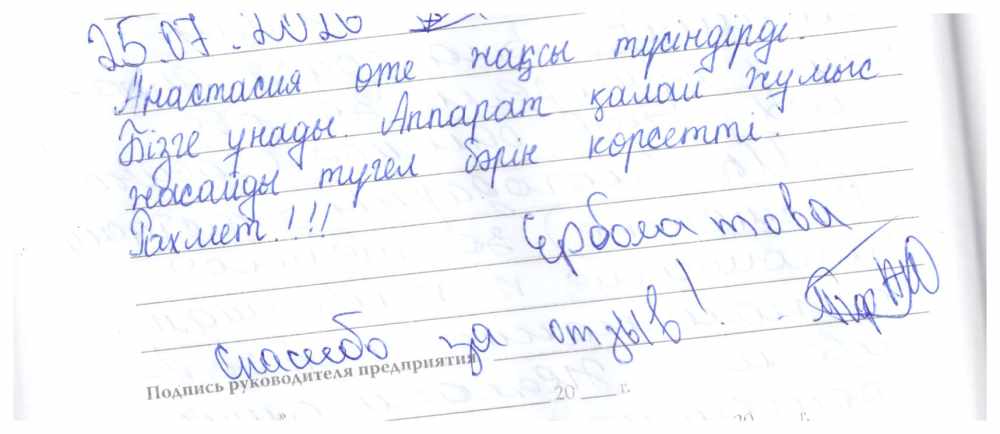 25.07.2020
Анастасия өте жақсы түсіндірді.
Бізге ұнады. Аппарат қалай жұмыс
жасайды түгел бәрін көрсетті.
Рахмет!!!
Ерболатова
Спасибо за отзыв!
Подпись руководителя предприятия
20 г.
20 г.